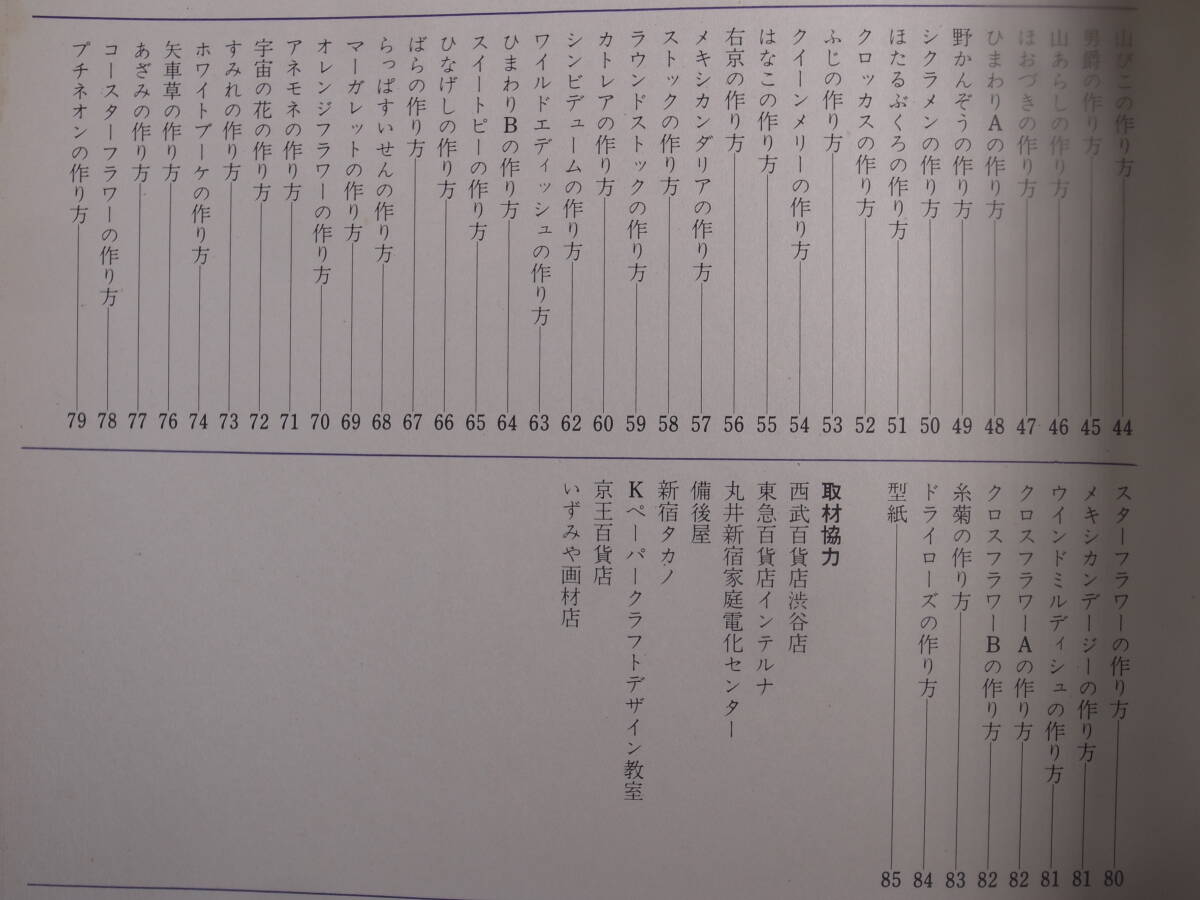 山びこの作り方 44
男爵の作り方 45
山あらしの作り方 46
ほおづきの作り方 47
ひまわりAの作り方 48
野かんぞうの作り方 49
シクラメンの作り方 50
ほたるぶくろの作り方 51
クロッカスの作り方 52
ふじの作り方 53
クイーンメリーの作り方 54
はなこの作り方 55
右京の作り方 56
メキシカンダリアの作り方 57
ストックの作り方 58
ラウンドストックの作り方 59
カトレアの作り方 60
シンビデュームの作り方 62
ワイルドエディッシュの作り方 63
ひまわりBの作り方 64
スイートピーの作り方 65
ひなげしの作り方 66
ばらの作り方 67
らっぱすいせんの作り方 68
マーガレットの作り方 69
オレンジフラワーの作り方 70
アネモネの作り方 71
宇宙の花の作り方 72
すみれの作り方 73
ホワイトブーケの作り方 74
矢車草の作り方 76
あざみの作り方 77
コースターフラワーの作り方 78
プチネオンの作り方 79
スターフラワーの作り方 80
メキシカンデージーの作り方 81
ウインドミルディシュの作り方 81
クロスフラワーAの作り方 82
クロスフラワーBの作り方 82
糸菊の作り方 83
ドライローズの作り方 84
型紙 85
取材協力
西武百貨店渋谷店
東急百貨店インテルナ
丸井新宿家庭電化センター
備後屋
新宿タカノ
Kペーパークラフトデザイン教室
京王百貨店
いずみや画材店